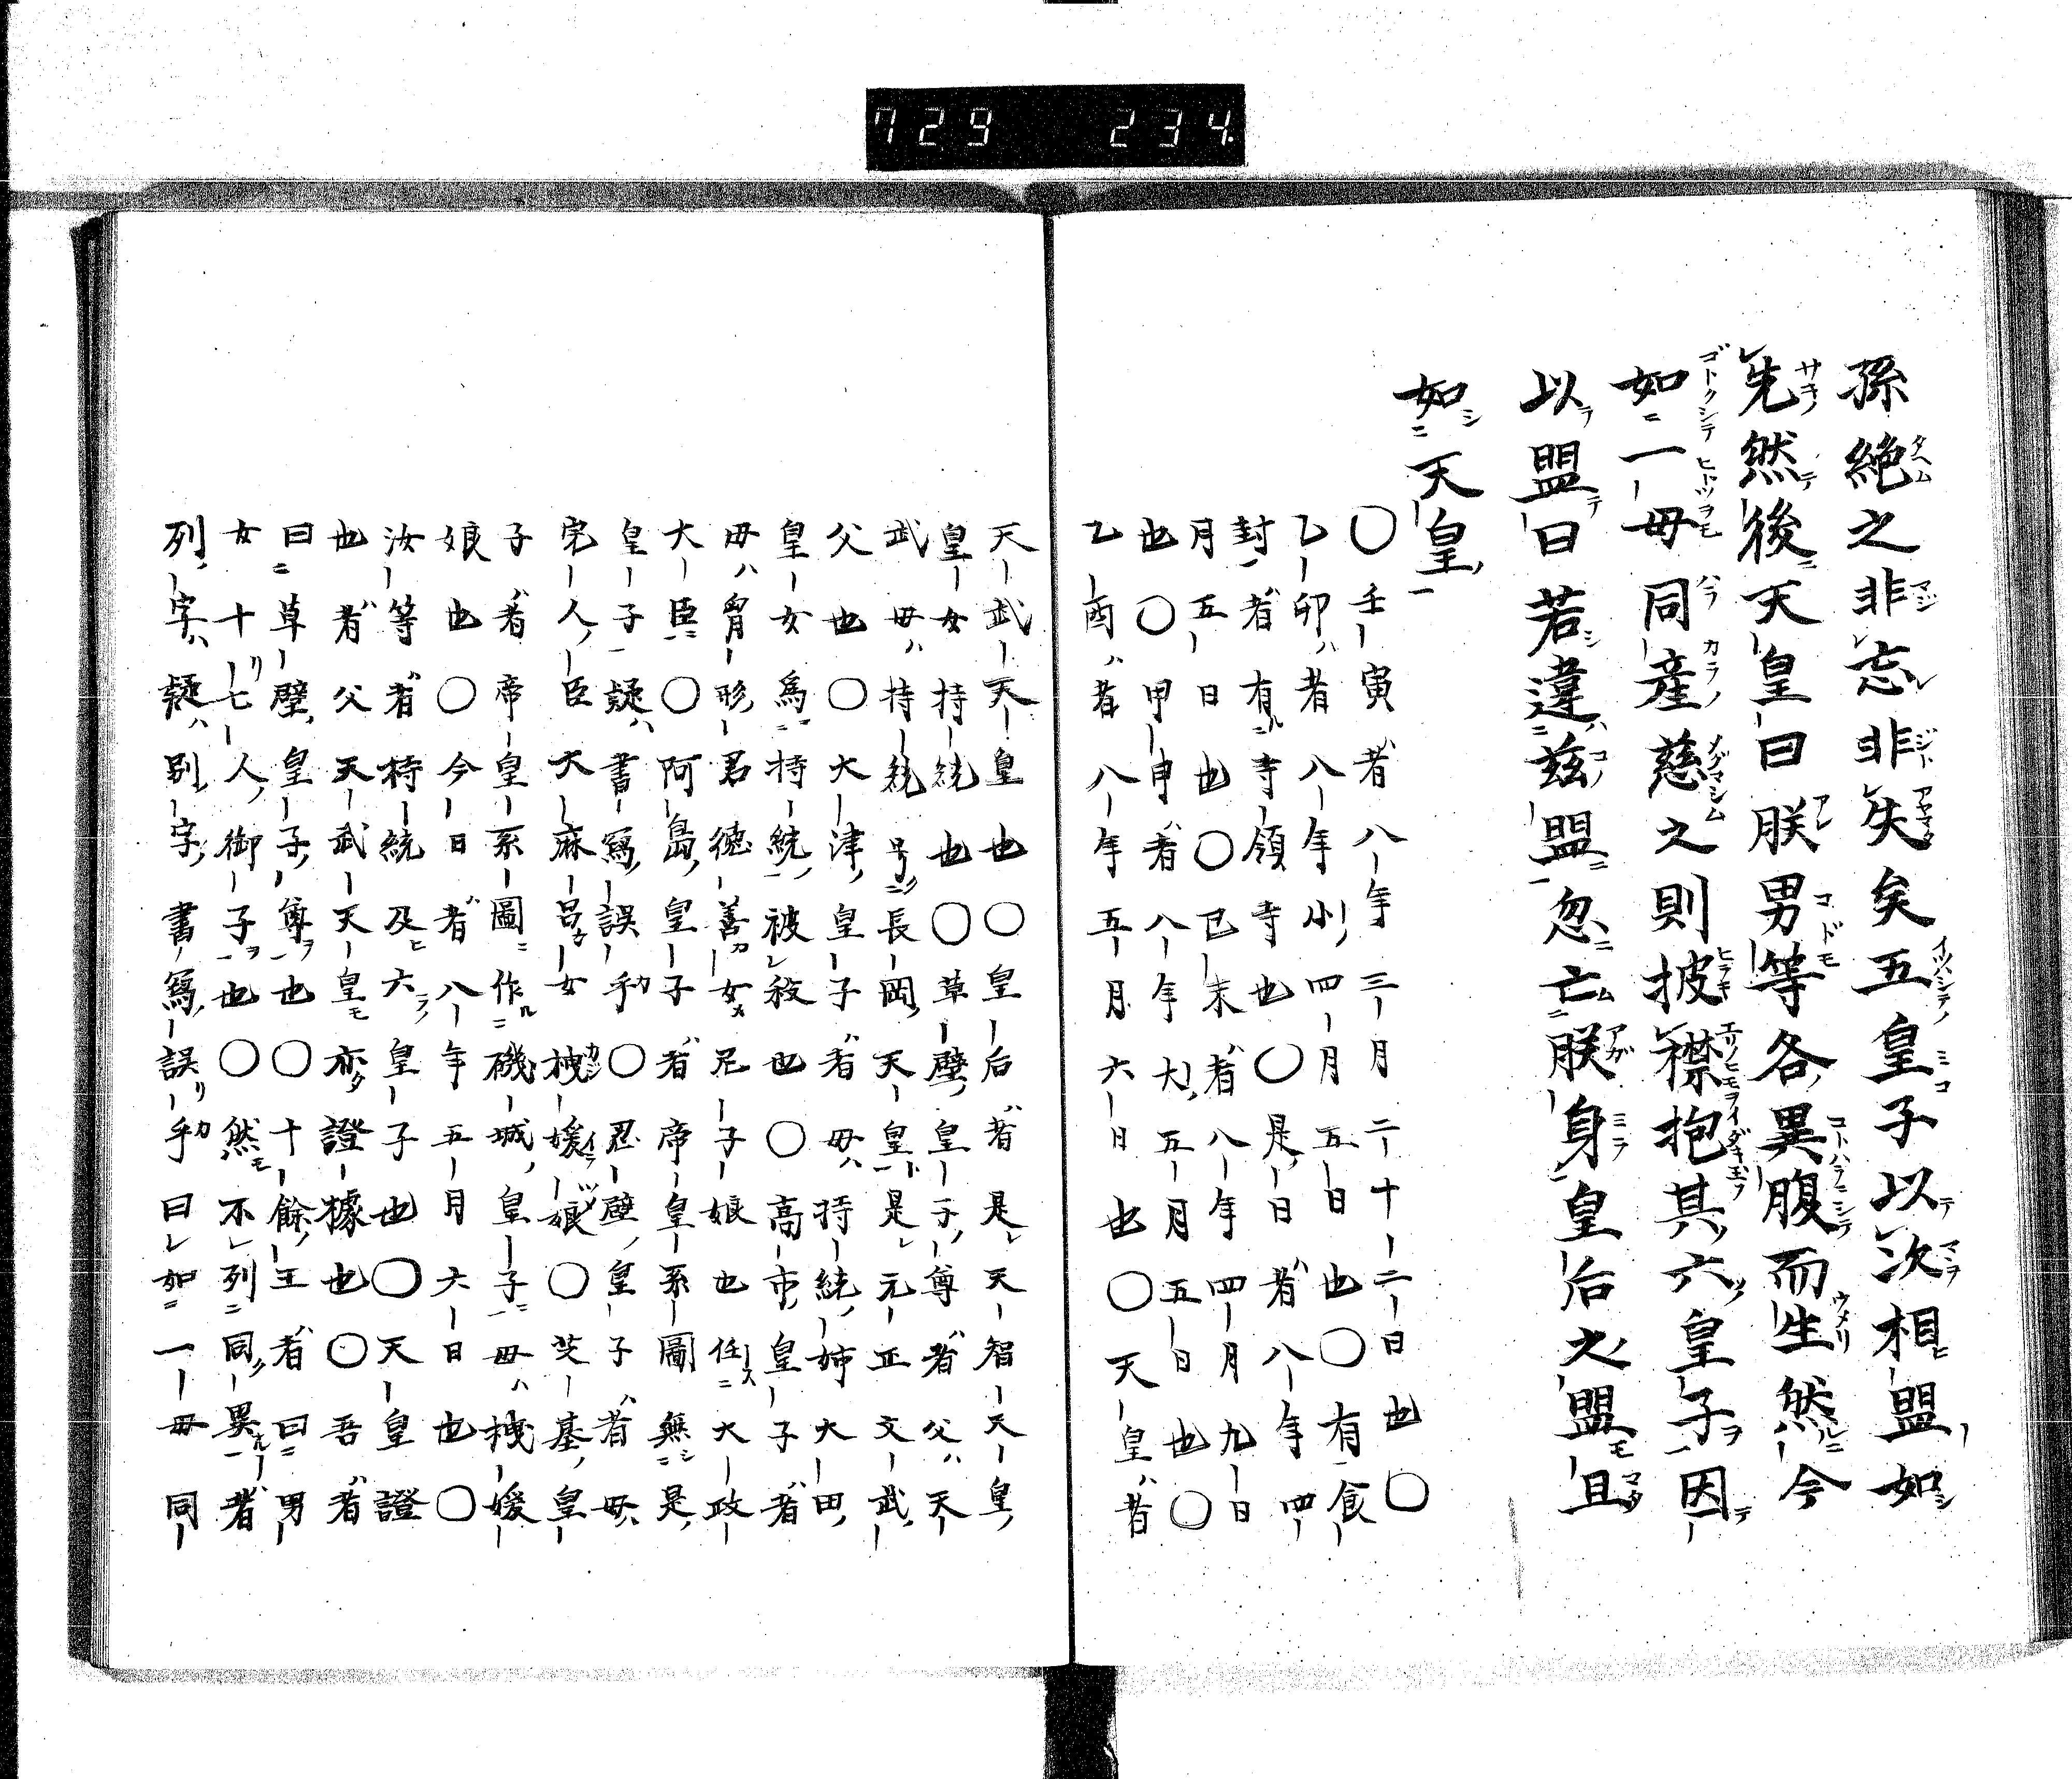 729 234
孫絶之非忘非失矣五皇子以次相盟如
先然後天皇曰朕男等各異腹而生然今
如一母同産慈之則披襟抱其六皇子因
以盟曰若違茲盟忽亡朕身皇后之盟且
如天皇
〇壬寅者八年三月二十二日也〇
乙卯者八年小四月五日也〇有食
封者有寺領寺也〇是日者八年四
月五日也〇己未者八年四月九日
也〇甲申者八年大五月五日也〇
乙酉者八年五月六日也〇天皇者
天武天皇也〇皇后者是天智天皇
皇女持統也〇草壁皇子尊者父天
武母持統号長岡天皇是元正文武
父也〇大津皇子者母持統姉大田
皇女為持統被殺也〇高市皇子者
母胷形君徳善女尼子娘也任大政
大臣〇阿島皇子者帝皇系圖無是
皇子疑書寫誤乎〇忍壁皇子者母
宍人臣大麻呂女梍媛娘〇芝基皇
子者帝皇系圖作磯城皇子母梍媛
娘也〇今日者八年五月六日也〇
汝等者持統及六皇子也〇天皇證
也者父天武天皇亦證據也〇吾者
曰草壁皇子尊也〇十餘王者曰男
女十七人御子也〇然不列同異者
列字疑別字書寫誤乎曰如一母同